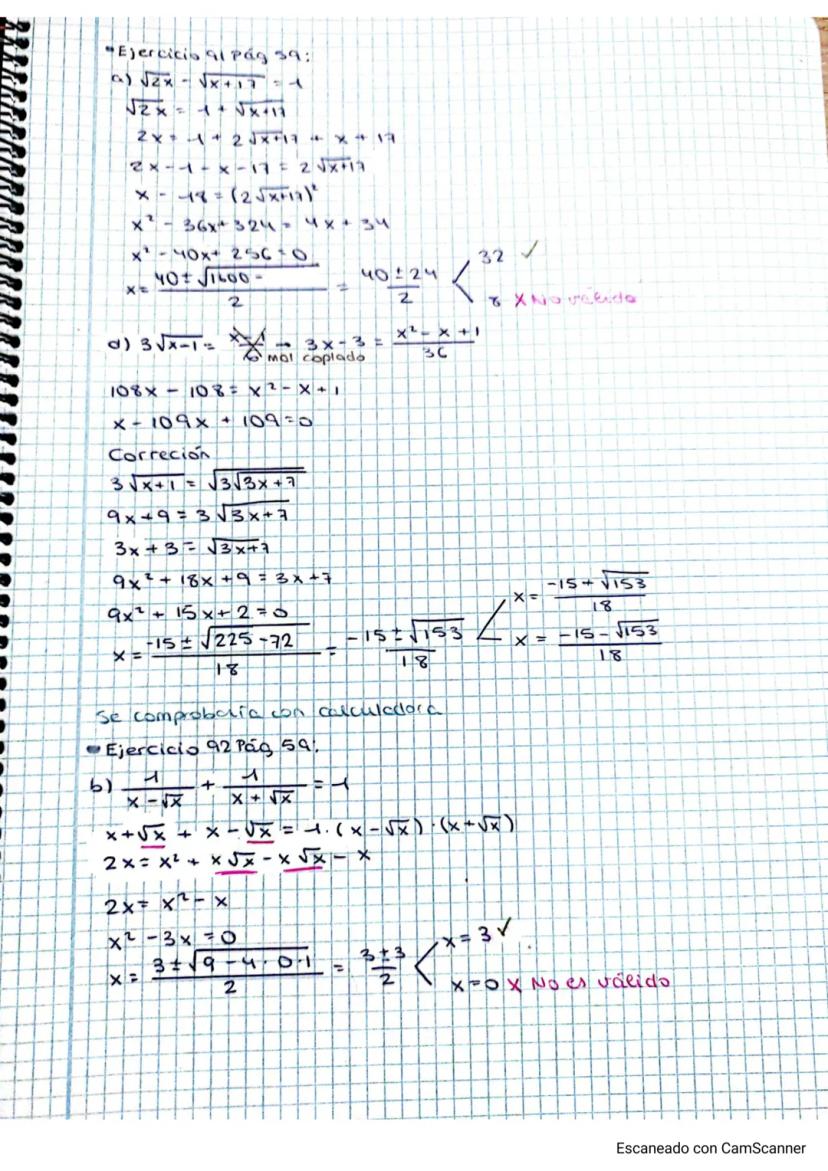 Ejercicio 91 Pág 59:
a) √2x - √x+17 = 1
√2x = 1 + √x+17
2x = 1 + 2√x+17 + x + 17
2x - 1 - x - 17 = 2√x+17
x - 18 = (2√x+17)²
x² - 36x + 324 = 4x + 34
x² - 40x + 256 = 0
x = 40 ± √1600 - / 2 = 40 ± 24 / 2 < 32 ✓
8 X No válido
d) 3√x-1 = x-1 / 6 mal copiado → 3x - 3 = x² - x + 1 / 36
108x - 108 = x² - x + 1
x - 109x + 109 = 0
Correción
3√x+1 = √3√3x+7
9x + 9 = 3√3x+7
3x + 3 = √3x+7
9x² + 18x + 9 = 3x + 7
9x² + 15x + 2 = 0
x = -15 ± √225 - 72 / 18 = -15 ± √153 / 18 < x = -15 + √153 / 18
x = -15 - √153 / 18
Se comprobaría con calculadora
Ejercicio 92 Pág 59:
b) 1 / x - √x + 1 / x + √x = 1
x + √x + x - √x = 1 · (x - √x) · (x + √x)
2x = x² + x√x - x√x - x
2x = x² - x
x² - 3x = 0
x = 3 ± √9 - 4 · 0 · 1 / 2 = 3 ± 3 / 2 < x = 3 ✓
x = 0 X No es válido
Escaneado con CamScanner